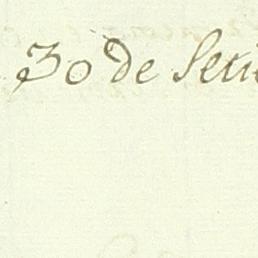 30 de Seti